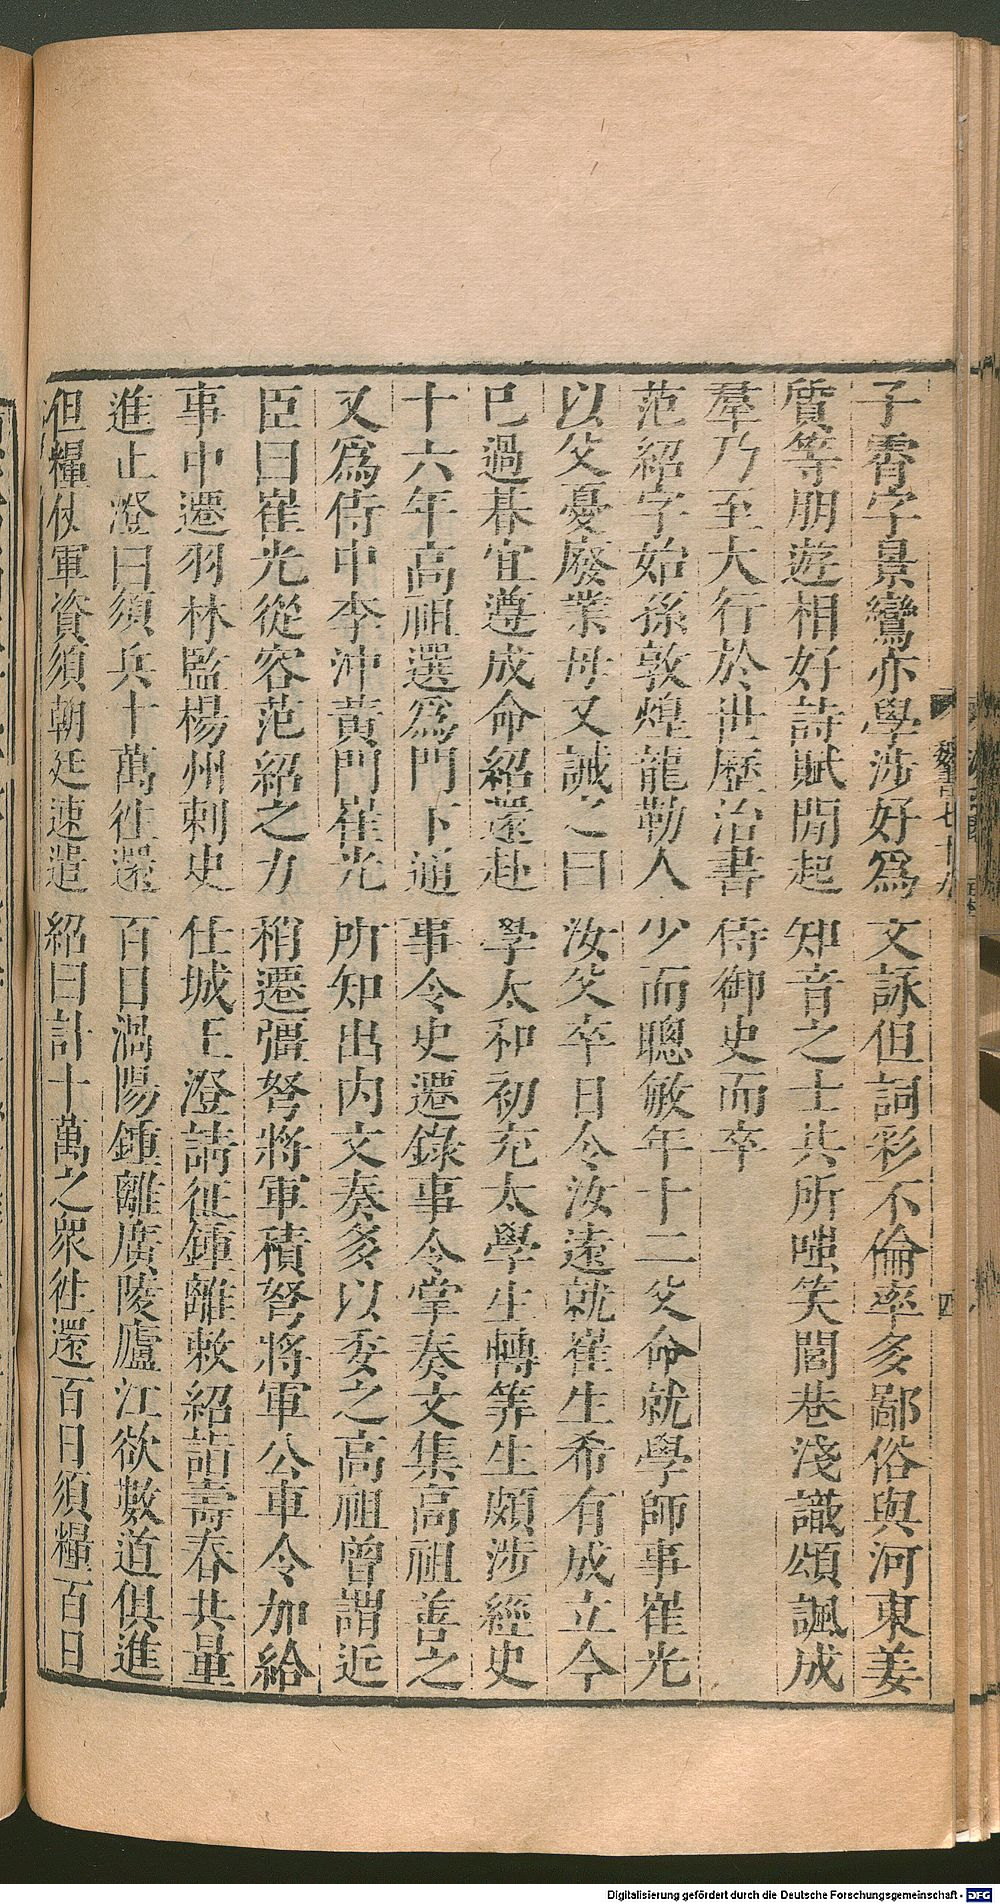 子霄字景鸞亦學涉好爲文詠但詞彩不倫率多鄙俗與河東姜
質等朋遊相好詩賦閒起知音之士共所嗤笑閭巷淺識頌諷成
羣乃至大行於世歷治書侍御史而卒
范紹字始孫敦煌龍勒人少而聰敏年十二父命就學師事崔光
以父憂廢業母又誡之曰汝父卒日令汝遠就崔生希有成立今
巳過朞宜遵成命紹還赴學太和初充太學生轉筭生頗涉經史
十六年高祖選爲門下通事令史遷錄事令掌奏文集高祖善之
又爲侍中李沖黃門崔光所知出内文奏多以委之高祖曾謂近
臣曰崔光從容范紹之力稍遷彊弩將軍積弩將軍公車令加給
事中遷羽林監楊州刺史任城王澄請征鍾離敕紹詣壽春共量
進止澄曰須兵十萬往還百日渦陽鍾離廣陵廬江欲數道俱進
但糧仗軍資須朝廷速遣紹曰計十萬之衆往還百日須糧百日
魏書七十九
四
Digitalisierung gefördert durch die Deutsche Forschungsgemeinschaft - DFG